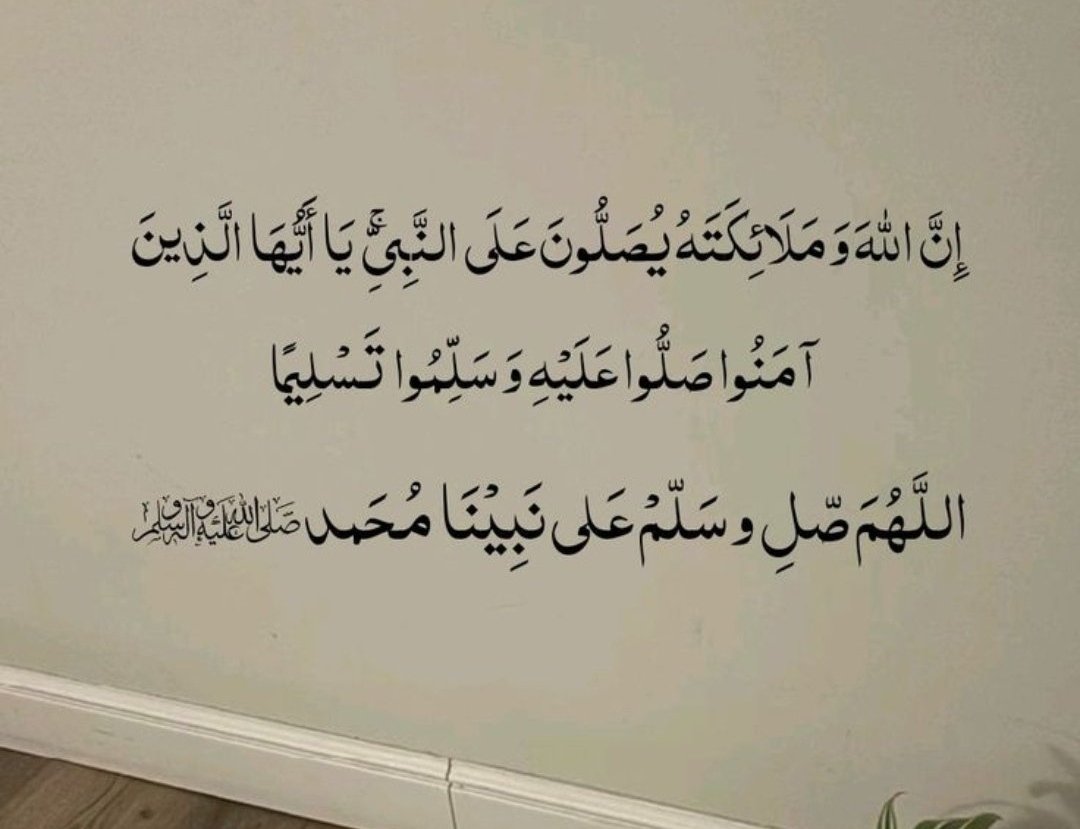 إِنَّ اللهَ وَ مَلَائِكَتَهُ يُصَلُّونَ عَلَى النَّبِيِّ ۚ يَا أَيُّهَا الَّذِينَ
آمَنُوا صَلُّوا عَلَيْهِ وَ سَلِّمُوا تَسْلِيمًا
اللَّهُمَ صّلِ و سَلّمْ عَلى نَبِيْنَا مُحَمد صَلَّى اللهُ عَلَيْهِ وَآلِهِ وَسَلَّمَ